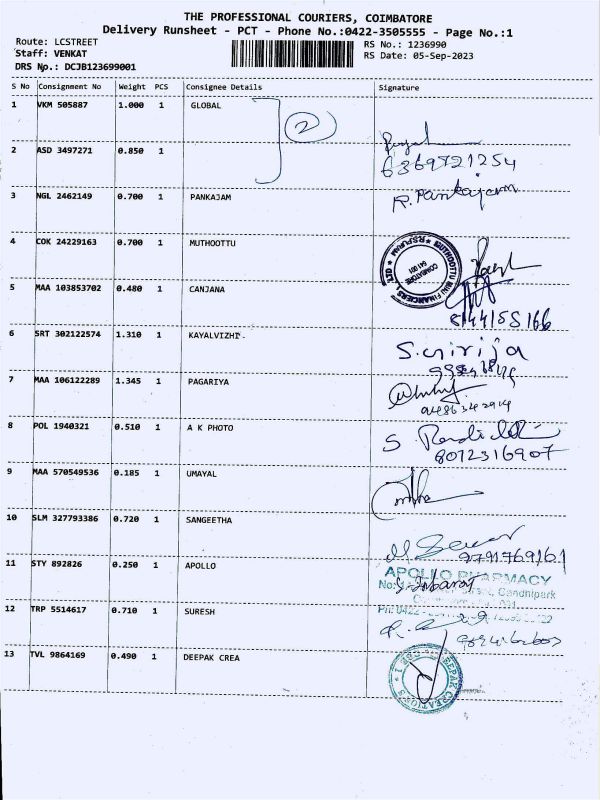 THE PROFESSIONAL COURIERS, COIMBATORE
Delivery Runsheet - PCT - Phone No.:0422-3505555 - Page No.:1
Route: LCSTREET RS No.: 1236990
Staff: VENKAT RS Date: 05-Sep-2023
DRS No.: DCJB123699001
S No Consignment No Weight PCS Consignee Details Signature
1 VKM 505887 1.000 1 GLOBAL
2
2 ASD 3497271 0.850 1
6369721254
3 NGL 2462149 0.700 1 PANKAJAM R. Pankajam
4 COK 24229163 0.700 1 MUTHOOTTU
MUTHOOTTU MINI FINANCIERS LTD
R.S.PURAM
COIMBATORE
641 001
5 MAA 103853702 0.480 1 CANJANA
8144155166
6 SRT 302122574 1.310 1 KAYALVIZHI S. Girija
7 MAA 106122289 1.345 1 PAGARIYA
9486342914
8 POL 1940321 0.510 1 A K PHOTO S
8012316907
9 MAA 570549536 0.185 1 UMAYAL
10 SLM 327793386 0.720 1 SANGEETHA
9791769161
11 STY 892826 0.250 1 APOLLO
APOLLO PHARMACY
No: Street, Gandhipark
12 TRP 5514617 0.710 1 SURESH
Ph: 0422
13 TVL 9864169 0.490 1 DEEPAK CREA
DEEPAK CREATIONS